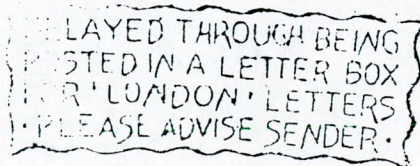 DELAYED THROUGH BEING
POSTED IN A LETTER BOX
FOR 'LONDON' LETTERS
· PLEASE ADVISE SENDER ·